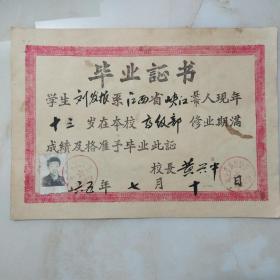 毕业証书
学生刘发根系江西省峡江县人现年
十三岁在本校高级部修业期满
成绩及格准予毕业此証
校長 黄兴中
六五年七月十一日